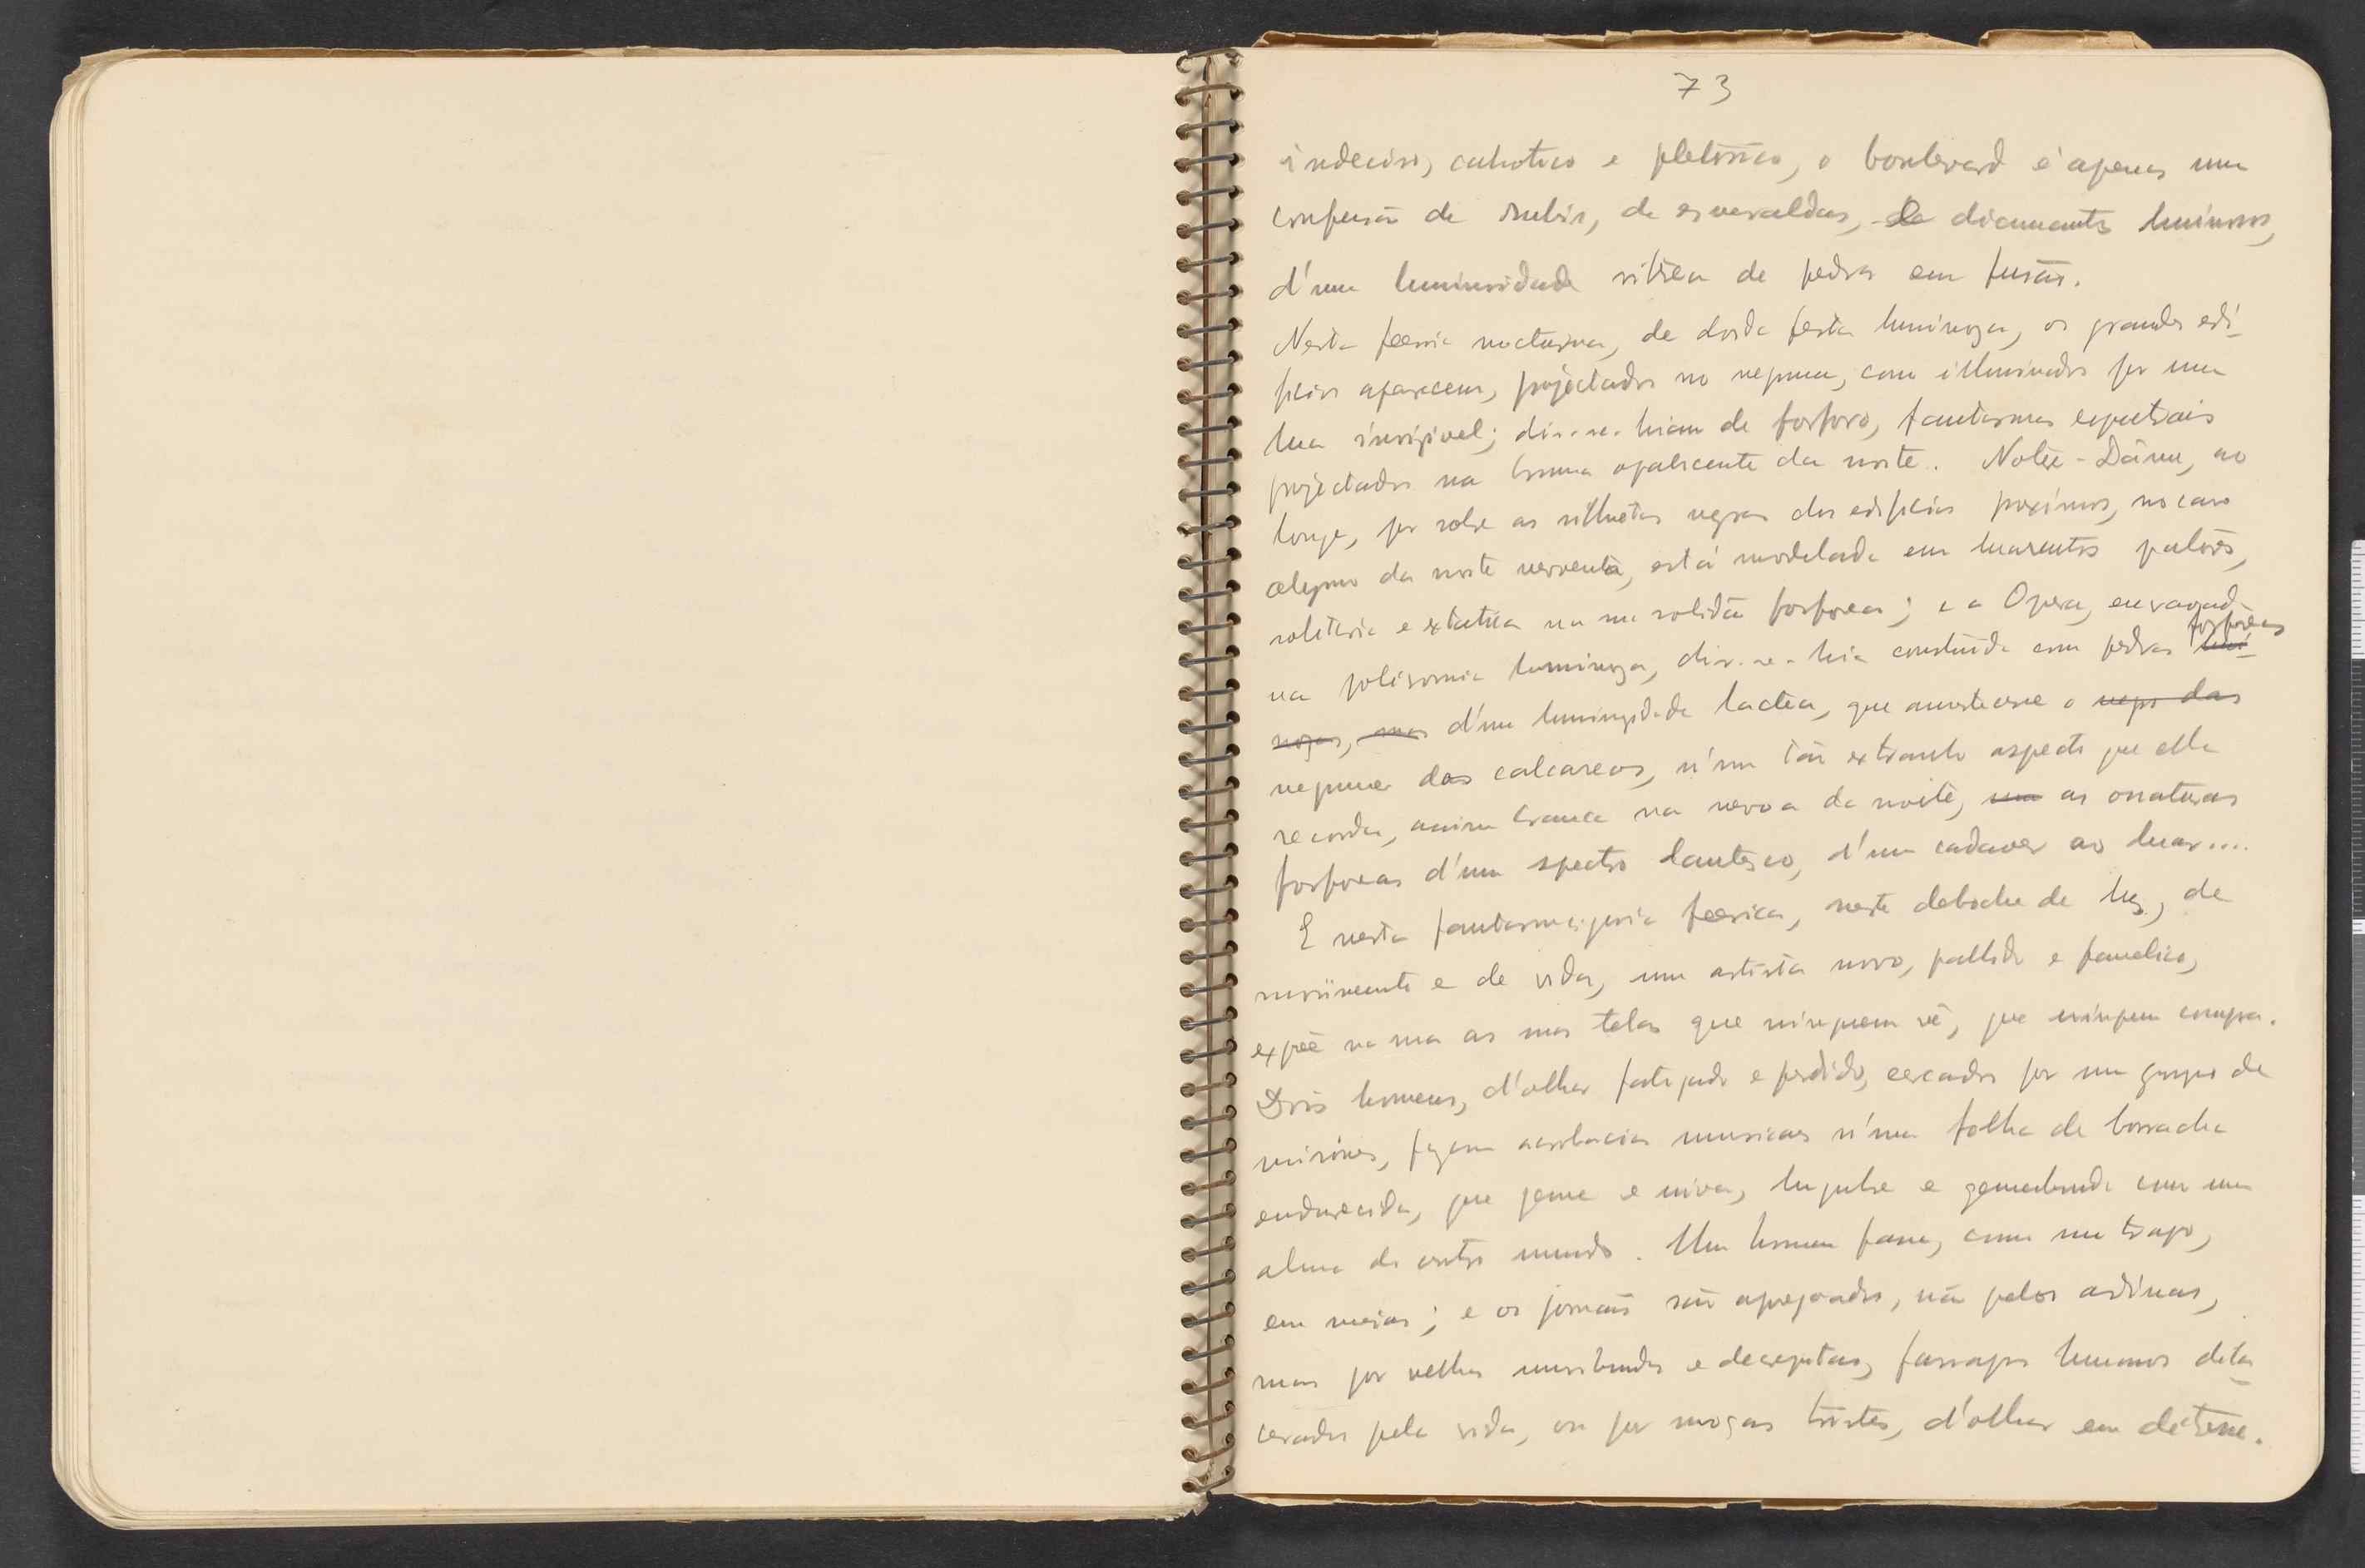 73
indeciso, cahotico e pletorico, o boulevard é apenas uma
confusão de rubis, de esmeraldas, de diamantes luminosos,
d'uma luminosidade vitrea de pedras em fusão.
Nesta feeria nocturna, de doida festa luminoza, os grandes edi-
ficios aparecem, projectados no negrume, como illuminados por uma
lua invizivel; dir-se-hiam de fosforo, fantasmas espectrais
projectados na bruma opalescente da noite. Notre-Dâme, ao
longe, por sobre as silhuetas negras dos edificios proximos, no caso
algemo da noite nevoenta, está modelada em luarentos palôres,
solitaria e extatica na sua solidão fosforea; e a Opera, encravada
na polisomia luminoza, dir-se-hia construida com pedras lumi- fosforeas
nozas, mas d'uma luminozidade lactea, que amortecesse o negro das
negrume dos calcareos, n'um tão extranho aspecto que ella
recorda, assim branca na nevoa da noite, uma as ossaturas
fosforeas d'um spectro dantesco, d'um cadaver ao luar....
E nesta fantasmagoria feerica, neste deboche de luz, de
movimento e de vida, um artista novo, pallido e famelico,
expõe na rua as suas telas que ninguem vê, que ninguem compra.
Dois homens, d'olhar fatigado e perdido, cercados por um grupo de
mirónes, fazem acrobacias musicaes n'uma folha de borracha
endurecida, que geme e uiva, lugubre e gemebunda como uma
alma do outro mundo. Um homem passa, como um trapo,
em meias; e os jornais são apregoados, não pelos ardinas,
mas por velhas moribundas e decrepitas, farrapos humanos dila-
cerados pela vida, ou por moças tristes, d'olhar em